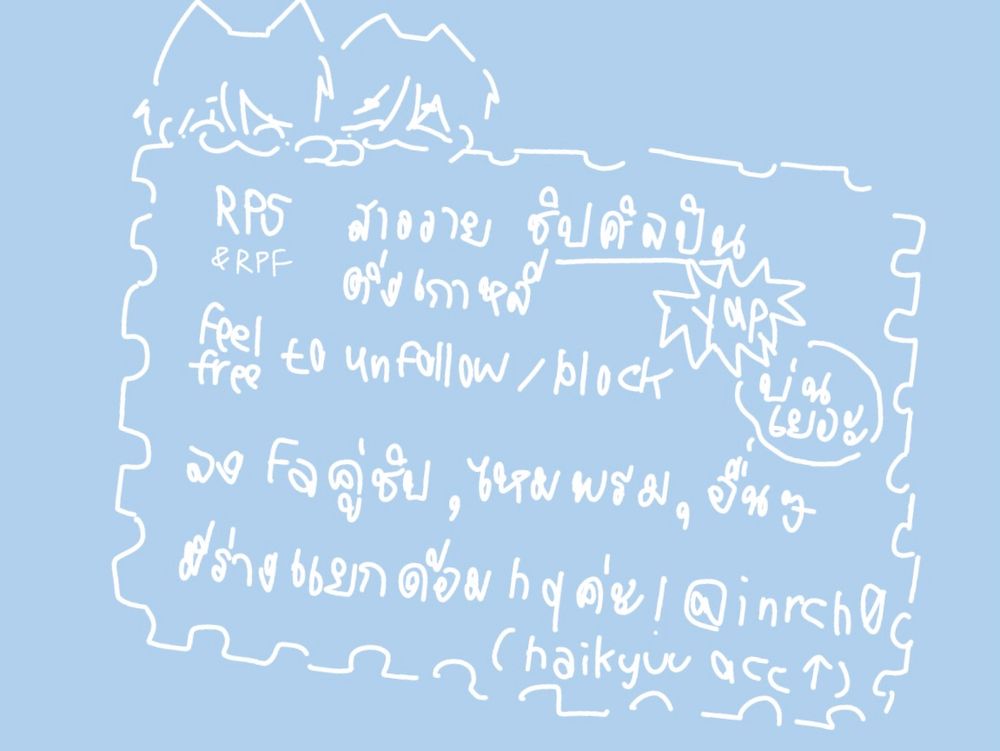 RPS สายวาย ชิปศิลปิน
& RPF ติ่งเกาหลี
yap
feel free to unfollow / block
บ่นเยอะ
ลง Fa คู่ชิป, ไหมพรม, อื่นๆ
มีร่างแยกด้อม hq ค่ะ! @inrch0
(haikyuu acc ↑)